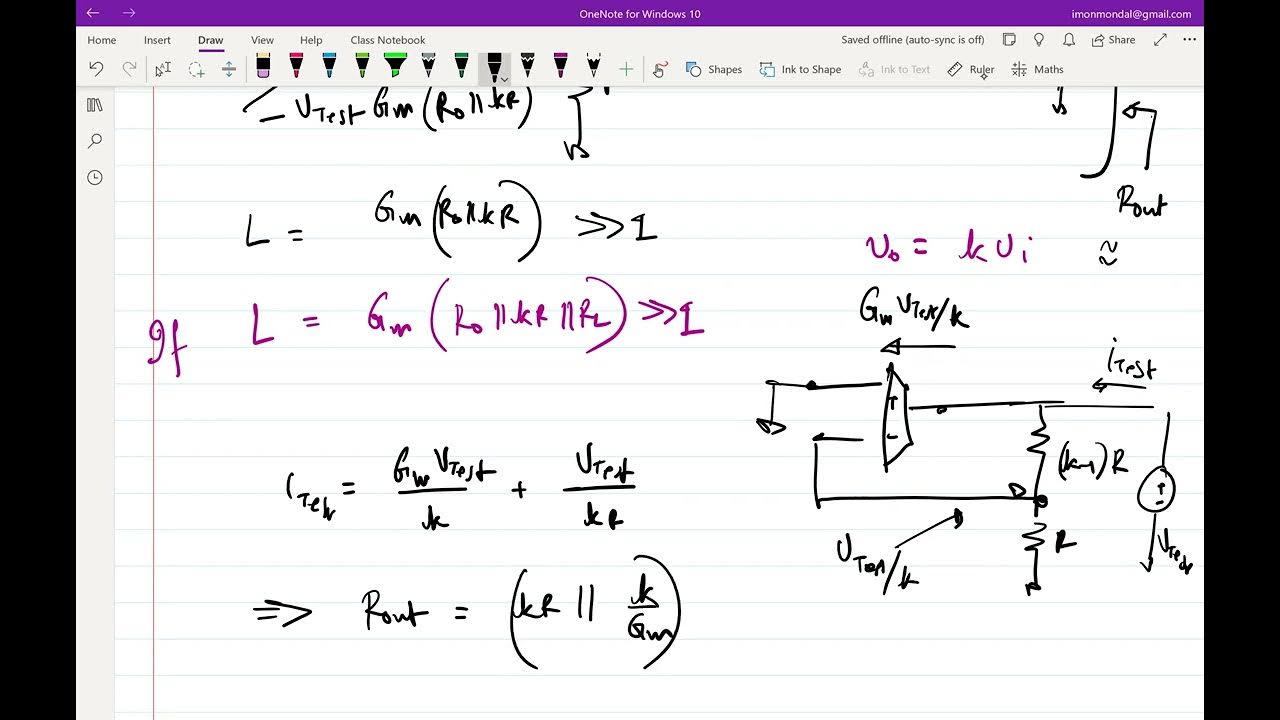 OneNote for Windows 10
imonmondal@gmail.com
Home Insert Draw View Help Class Notebook
Saved offline (auto-sync is off) Share
Shapes Ink to Shape Ink to Text Ruler Maths
= VTest Gm (Ro || kR)
Rout
L = Gm (Ro || kR) >> 1
vo = k vi ≈
If L = Gm (Ro || kR || RL) >> 1
Gm VTest/k
iTest
+
-
(k-1) R
+
-
iTest = Gm VTest / k + VTest / kR
VTest/k
R
VTest
=> Rout = (kR || k/Gm)